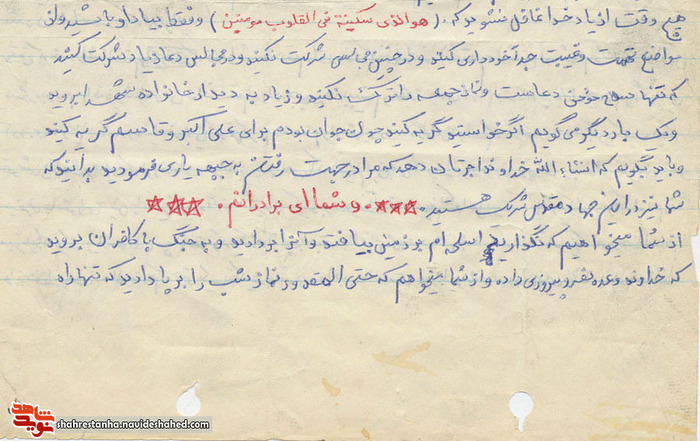 هیچ وقت از یاد خدا غافل نشوید که (هو الذی سکینة فی القلوب مومنین) و فقط بیاد او باشید و از
مواضع تهمت و غیبت جداً خودداری کنید و در چنین مجالسی شرکت نکنید و در مجالس دعا زیاد شرکت کنید
که تنها سلاح مؤمن دعاست و نماز جمعه را ترک نکنید و زیاد به دیدار خانواده شهدا بروید
و یک بار دیگر می گویم اگر خواستید گریه کنید چون جوان بودم برای علی اکبر و قاسم گریه کنید
و باید بگویم که انشاء الله خداوند اجرتان دهد که مرا در جهت رفتنم به جبهه یاری فرمودید بدانید که
شما نیز در این جهاد مقدس شریک هستید. *** و شما ای برادرانم. ***
از شما میخواهیم که نگذارید اسلحه ام بر زمین بیافتد و آنرا بردارید و به جنگ با کافران بروید
که خداوند وعده نصر و پیروزی داده و از شما میخواهم که حتی المقدور نماز شب را بر پا دارید که تنها راه
نوید شاهد
shahrestanha.navideshahed.com